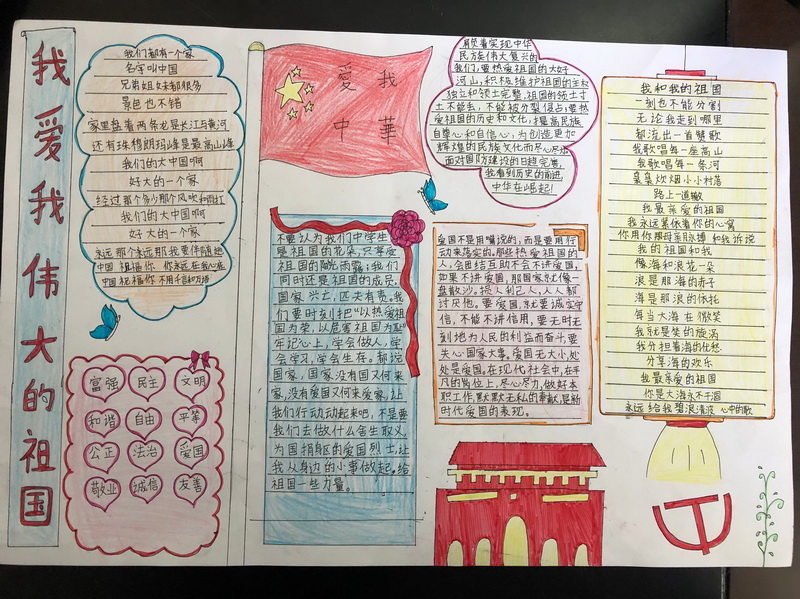 我爱我伟大的祖国
我们都有一个家
名字叫中国
兄弟姐妹都很多
景色也不错
家里盘着两条龙是长江与黄河
还有珠穆朗玛峰是最高山峰
我们的大中国啊
好大的一个家
经过那个多少那个风吹和雨打
我们的大中国啊
好大的一个家
永远那个永远那我要伴随她
中国祝福你 你永远在我心底
中国祝福你不用千言和万语
富强 民主 文明
和谐 自由 平等
公正 法治 爱国
敬业 诚信 友善
愛 我
中 華
肩负着实现中华
民族伟大复兴的
我们,要热爱祖国的大好
河山,积极维护祖国的主权
独立和领土完整,祖国的领土寸
土不能丢,不能被分裂侵占;要热
爱祖国的历史和文化,提高民族
自尊心和自信心,为创造更加
辉煌的民族文化而尽心尽力
面对国防建设的日趋完善,
我看到历史的前进,
中华在崛起!
不要认为我们中学生
是祖国的花朵,只享受
祖国的阳光雨露;我们
同时还是祖国的成员。
国家兴亡,匹夫有责。我
们要时刻把“以热爱祖
国为荣,以危害祖国为耻”
牢记心上,学会做人,学
会学习,学会生存。都说
国家,国家,没有国又何来
家,没有爱国又何来爱家,让
我们行动动起来吧,不是要
我们去做什么舍生取义,
为国捐躯的爱国烈士,让
我从身边的小事做起。给
祖国一些力量。
爱国不是用嘴说的,而是要用行
动来落实的。那些热爱祖国的
人,会团结互助不会不讲爱国,
如果不讲爱国,那国家就像一
盘散沙,损人利己,人人都
讨厌他。要爱国,就要诚实守
信,不能不讲信用,要无时无
刻地为人民的利益而奋斗,要
关心国家大事,爱国无大小,处
处是爱国,在现代社会中,在平
凡的岗位上,尽心尽力,做好本
职工作,默默无私的奉献,是新
时代爱国的表现。
我和我的祖国
一刻也不能分割
无论我走到哪里
都流出一首赞歌
我歌唱每一座高山
我歌唱每一条河
袅袅炊烟小小村落
路上一道辙
我最亲爱的祖国
我永远紧依着你的心窝
你用你那母亲的脉搏和我诉说
我的祖国和我
像海和浪花一朵
浪是那海的赤子
海是那浪的依托
每当大海在微笑
我就是笑的旋涡
我分担着海的忧愁
分享海的欢乐
我最亲爱的祖国
你是大海永不干涸
永远给我碧浪清波 心中的歌